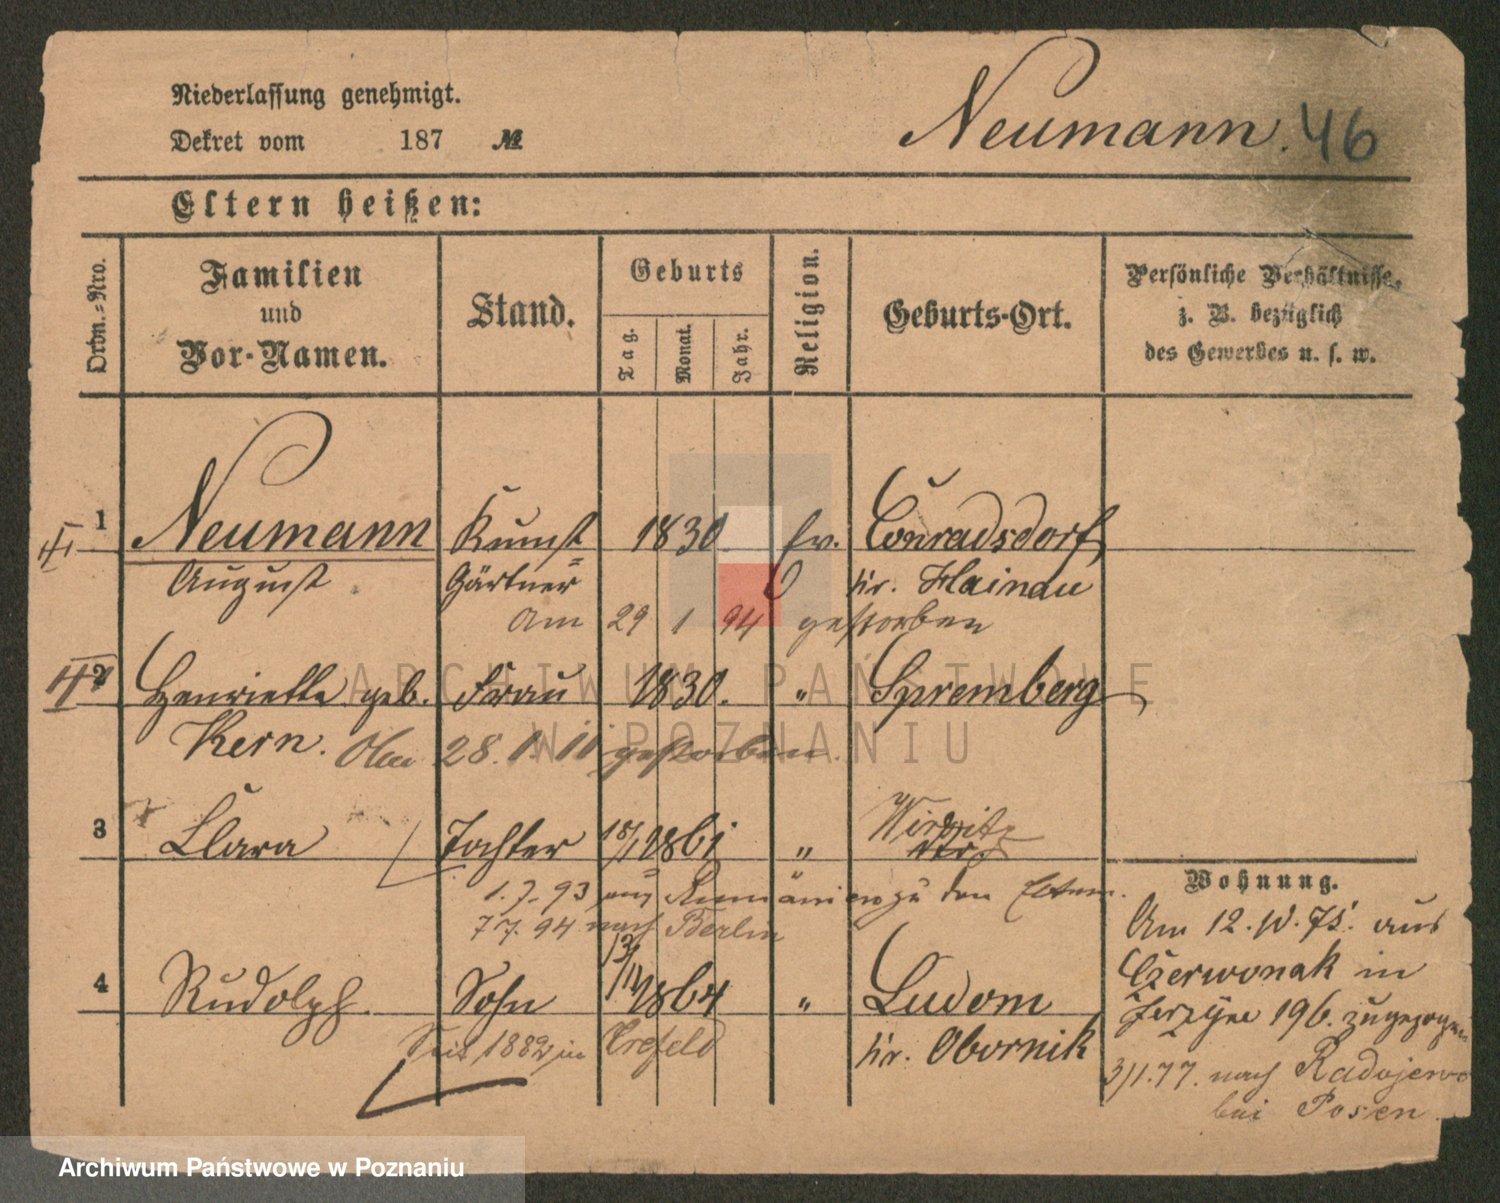 Niederlassung genehmigt.
Dekret vom 187 №
Neumann. 46
Eltern heißen:
Ordn.-Nro.
Familien
und
Vor-Namen.
Stand.
Geburts
Tag.
Monat.
Jahr.
Religion.
Geburts-Ort.
Persönliche Verhältnisse,
z. B. bezüglich
des Gewerbes u. s. w.
1 Neumann Kunst= 1830. Ev. Conradsdorf
August Gärtner Kr. Hainau
Am 29 1 94 gestorben
2 Henriette geb. Frau 1830. " Spremberg
Kern. Am 28. 1. 11 gestorben
ARCHIWUM PAŃSTWOWE
W POZNANIU
3 Clara Tochter 18/1 1861 "
1.7.93 aus Rumänien zu den Eltern.
7.7.94 nach Berlin
4 Rudolph. Sohn 1864 " Ludom
Seit 1882 in Crefeld Kr. Obornik
Wohnung.
Am 12. 10. 75. aus
Czerwonak in
Jerzyce 196. zugezogen
3/1.77. nach Radojewo
bei Posen
Archiwum Państwowe w Poznaniu